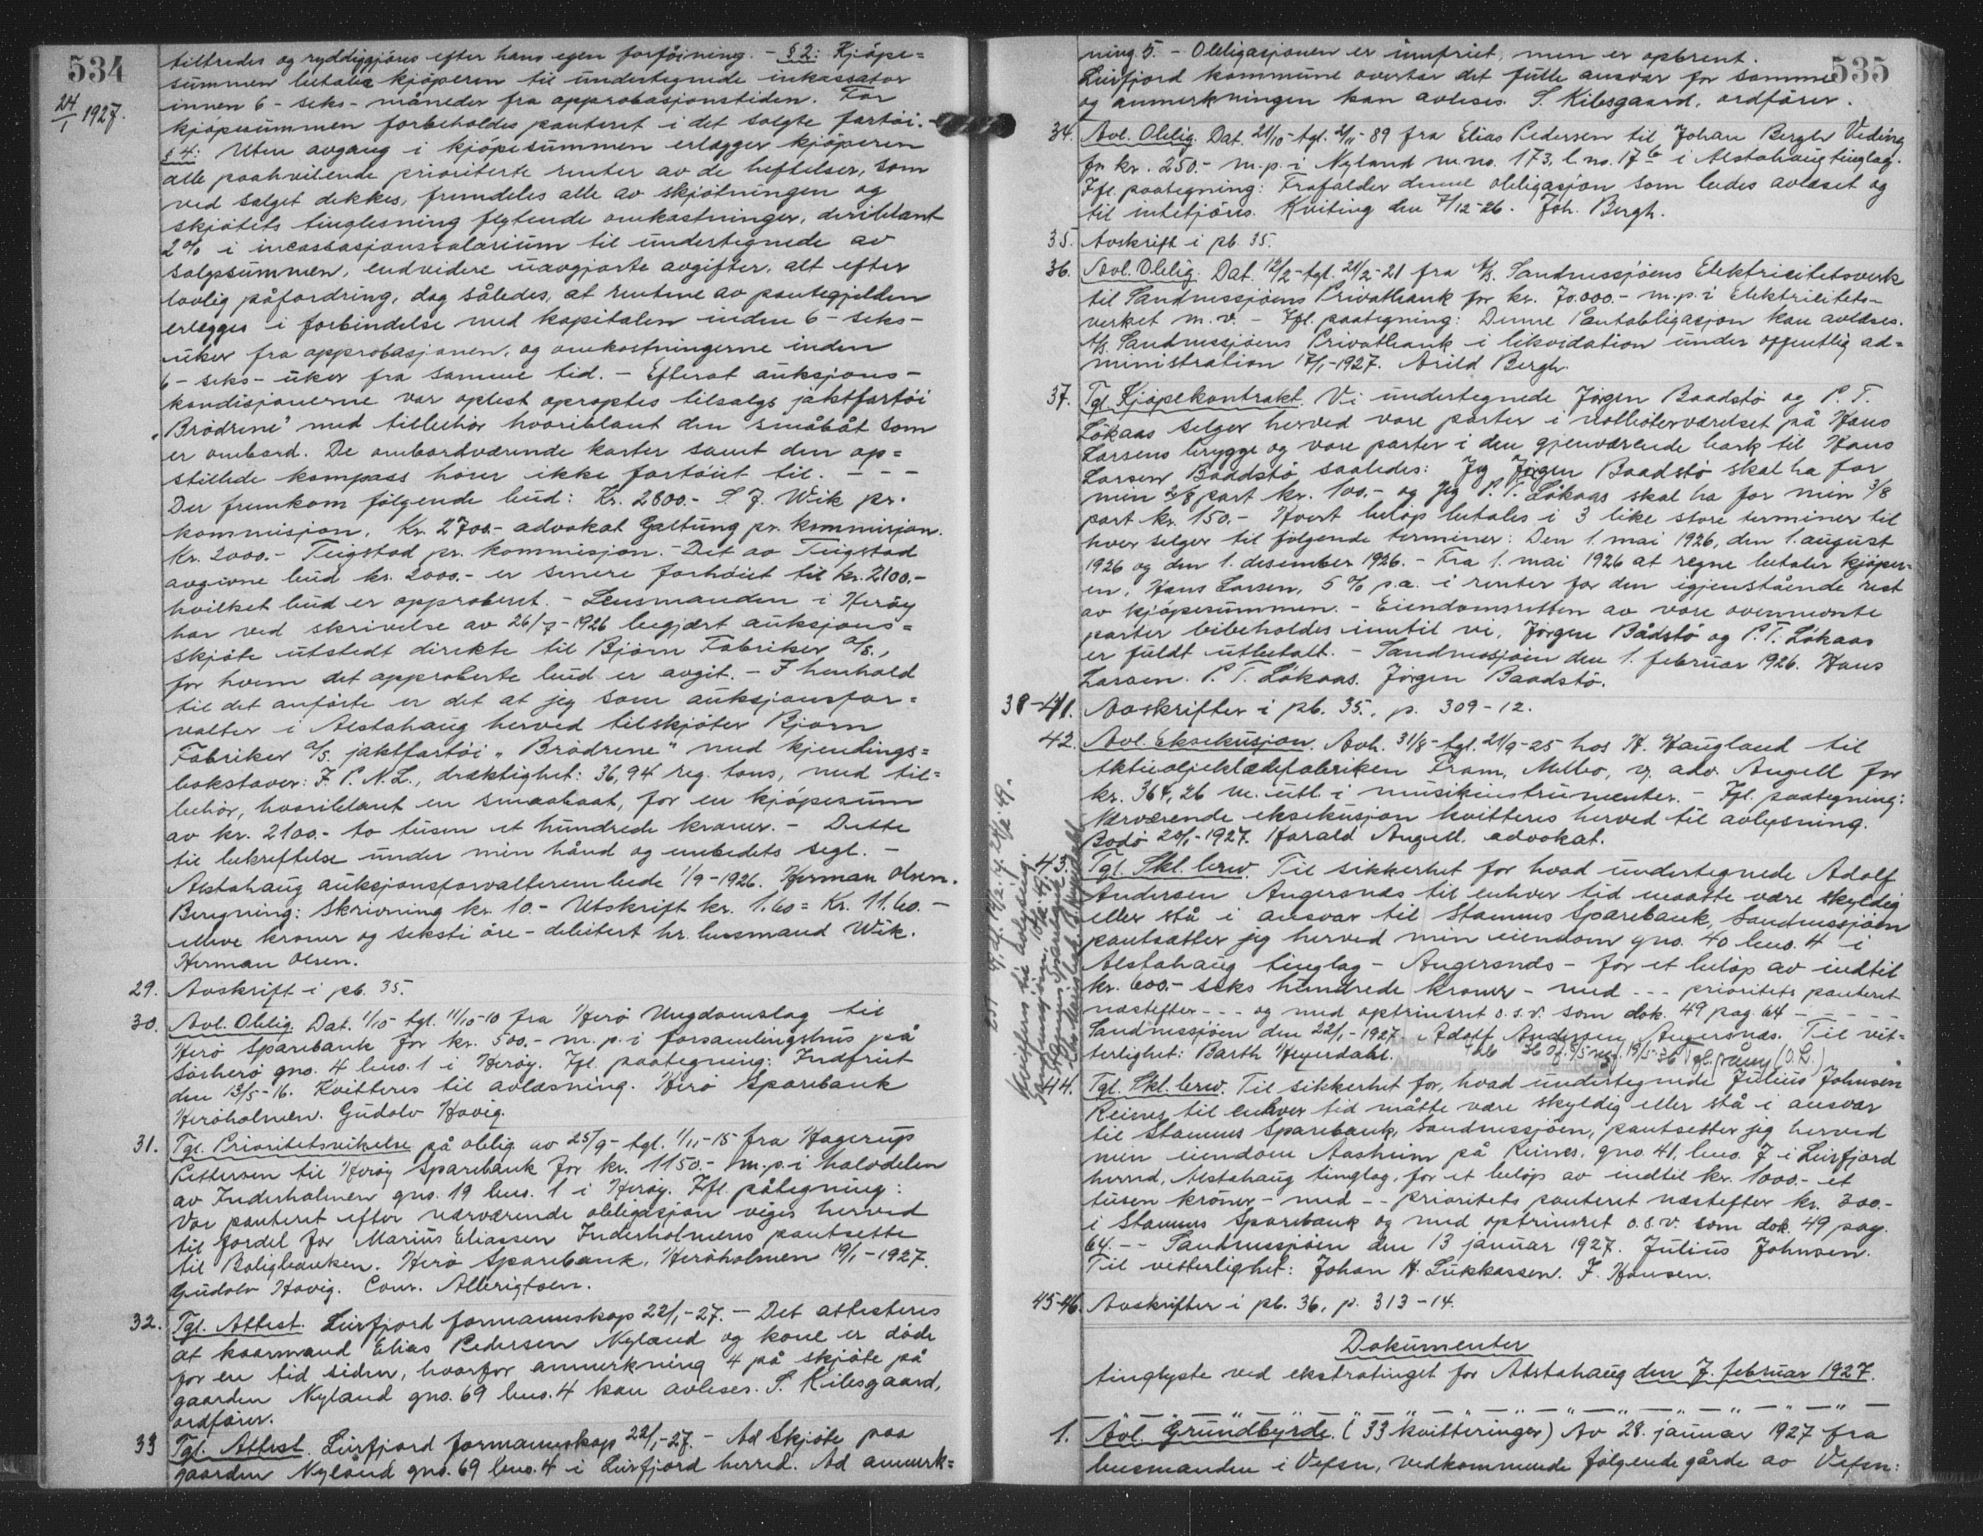 534
24/1 1927.
tiltredes og ryddiggjøres efter hans egen forføining. - § 2: Kjøpe=
summen betales kjøperen til undertegnede inkassator
innen 6 - seks - måneder fra approbasjonstiden. For
kjøpesummen forbeholdes panteret i det solgte fartøi. -
§ 4: Uten avgang i kjøpesummen erlægger kjøperen
alle paahvilende prioriterte renter av de heftelser, som
ved salget dekkes, fremdeles alle av skjøtningen og
skjøtets tinglesning flytende omkostninger, deriblant
2 % i incassasjonssalarium til undertegnede av
salgssummen, endvidere uavgjorte avgifter, alt efter
lovlig påfordring, dog således, at rentene av pantegjelden
erlegges i forbindelse med kapitalen inden 6 - seks -
uker fra approbasjonen, og omkostningerne inden
6 - seks - uker fra samme tid. - Efterat auksjons-
kondisjonerne var oplest oproptes tilsalgs jaktfartøi
„Brødrene" med tilbehør hvoriblant den småbåt som
er ombord. De ombordværende karter samt den op=
stillede kompass hører ikke fartøiet til. - - -
Der fremkom følgende bud: Kr. 2800.- S. J. Wik pr.
kommisjon. Kr. 2700.- advokat Galtung pr. kommisjon.
Kr. 2000.- Teigstad pr. kommisjon. - Det av Teigstad
avgivne bud kr. 2000.- er senere forhøiet til kr. 2100.-
hvilket bud er approberet. - Lensmanden i Herøy
har ved skrivelse av 26/7-1926 begjært auksjons=
skjøte utstedt direkte til Bjørn Fabriker A/S.,
for hvem det approberte bud er avgit. - I henhold
til det anførte er det at jeg som auksjonsfor=
valter i Alstahaug herved tilskjøter Bjørn
Fabriker A/S. jaktfartøi „Brødrene" med kjendings=
bokstaver: J. P. N. L., dræktighet: 36,94 reg. tons, med til=
behør, hvoriblant en smaabaat, for en kjøpesum
av kr. 2100.- to tusen et hundrede kroner. - Dette
til bekreftelse under min hånd og embedets segl. -
Alstahaug auksjonsforvalterembede 1/9-1926. Herman Olsen.
Beregning: Skrivning kr. 10.- Utskrift kr. 1.60 = Kr. 11.60. -
elleve kroner og seksti øre - debitert hr. lensmand Wik.
Herman Olsen.
29. Avskrift i pb. 35.
30. Avl. Oblig. Dat. 1/10 - tgl. 11/10-10 fra Herø Ungdomslag til
Herø Sparebank for kr. 500.- m. p. i forsamlingshus på
Sørherø gno. 4 bno. 1 i Herøy. Ifl. paategning: Indfriet
den 13/5-16. Kvitteres til avlæsning. Herø Sparebank
Herøholmen. Gudolv Hovig.
31. Tgl. Prioritetsvikelse på oblig. av 25/9 - tgl. 1/11-15 fra Hagerup
Pettersen til Herøy Sparebank for kr. 1150.- m. p. i halvdelen
av Inderholmen gno. 19 bno. 1 i Herøy. Ifl. påtegning:
Vor panteret efter nærværende obligasjon viges herved
til fordel for Marius Eliassen Inderholmens pantsette
til Boligbanken. Herø Sparebank, Herøholmen 19/1-1927.
Gudolv Hovig. Conr. Albrigtsen.
32. Tgl. Attest. Leirfjord formannskap 22/1-27. - Det attesteres
at kaarmand Elias Pedersen Nyland og kone er døde
for en tid siden, hvorfor anmerkning 4 på skjøte på
gaarden Nyland gno. 69 bno. 4 kan avleses. S. Kibsgaard,
ordfører.
33 Tgl. Attest. Leirfjord formannskap 22/1-27. - Ad Skjøte paa
gaarden Nyland gno. 69 bno. 4 i Leirfjord herred. Ad anmerk=
535
ning 5. - Obligasjonen er innfriet, men er opbrent.
Leirfjord kommune overtar det fulle ansvar for samme
og anmerkningen kan avleses. S. Kibsgaard, ordfører.
34. Avl. Oblig. Dat. 21/10 - tgl. 2/11-89 fra Elias Pedersen til Johan Bergh Veding
for kr. 250.- m. p. i Nyland m. no. 173, l. no. 17b i Alstahaug tinglag.
Ifl. paategning: Frafalder denne obligasjon som bedes avlæset og
til intetgjøres. Kviting den 7/12-26. Joh. Bergh.
35. Avskrift i pb. 35.
36. Avl. Oblig. Dat. 12/2 - tgl. 21/2-21 fra A/S. Sandnessjøens Elektricitetsverk
til Sandnessjøens Privatbank for kr. 70.000.- m. p. i Elektricitets-
verket m. v. - Ifl. paategning: Denne Pantobligasjon kan avlæses.
A/S. Sandnessjøens Privatbank i likvidation under offentlig ad=
ministration 17/1-1927. Arild Bergh.
37. Tgl. Kjøpekontrakt. Vi undertegnede Jørgen Baadstø og P. T.
Løkaas selger herved vore parter i notboterværelset på Hans
Larsens brygge og vore parter i den gjenværende bark til Hans
Larsen Baadstø saaledes: Jeg Jørgen Baadstø skal ha for
min 2/8 part kr. 100.- og jeg P. T. Løkaas skal ha for min 3/8
part kr. 150.- Hvert beløp betales i 3 like store terminer til
hver selger til følgende terminer: Den 1. mai 1926, den 1. august
1926 og den 1. desember 1926. - Fra 1. mai 1926 at regne betaler kjøper-
en, Hans Larsen, 5 % p.a. i renter for den igjenstående rest
av kjøpesummen. - Eiendomsretten av vore ovennevnte
parter bibeholdes inntil vi, Jørgen Bådstø og P. T. Løkaas
er fuldt utbetalt. - Sandnessjøen den 1. februar 1926. Hans
Larsen. P. T. Løkaas. Jørgen Baadstø.
38-41. Avskrifter i pb. 35, p. 309-12.
42. Avl. Eksekusjon. Avh. 31/8 - tgl. 21/9-25 hos H. Haugland til
Aktieoljeklædefabriken Fram, Melbo, v. adv. Angell for
kr. 364,26 m. utl. i musikinstrumenter. - Ifl. paategning:
Nærværende eksekusjon kvitteres herved til avlysning.
Bodø 20/1-1927. Harald Angell. advokat.
43. Tgl. Skl. brev. Til sikkerhet for hvad undertegnede Adolf
Andersen Angersnæs til enhver tid maatte være skyldig
eller stå i ansvar til Stamnes Sparebank, Sandnessjøen
pantsætter jeg herved min eiendom gno. 40 bno. 4 i
Alstahaug tinglag - Angersnæs - for et beløp av indtil
kr. 600.- seks hundrede kroner - med - - - prioritets panteret
næstefter - - - og med optrinsret o. s. v. som dok. 49 pag. 64 - - - - -
Sandnessjøen den 22/1-1927. Adolf Andersen, Angersnæs. Til vit-
terlighet: Barth Heyerdahl.
44. Tgl. Skl. brev. Til sikkerhet for, hvad undertegnede Julius Johnsen
Reines til enhver tid måtte være skyldig eller stå i ansvar
til Stamnes Sparebank, Sandnessjøen, pantsetter jeg herved
min eiendom Aasheim på Reines, gno. 41, bno. 7 i Leirfjord
herred, Alstahaug tinglag, for et beløp av indtil kr. 1000.- et
tusen kroner - med - - prioritets panteret næstefter kr. 300.-
i Stamnes Sparebank og med optrinsret o. s. v. som dok. 49 pag.
64. - - Sandnessjøen den 13 januar 1927. Julius Johnsen.
Til vitterlighet: Johan H. Lukkassen. F. Hansen.
45-46. Avskrifter i pb. 36, p. 313-14.
Dokumenter
tinglyste ved ekstratinget for Alstahaug den 7. februar 1927.
1. Avl. Grundbyrde. (33 kvitteringer) Av 28. januar 1927 fra
lensmanden i Vefsn, vedkommende følgende gårde av Vefsn: